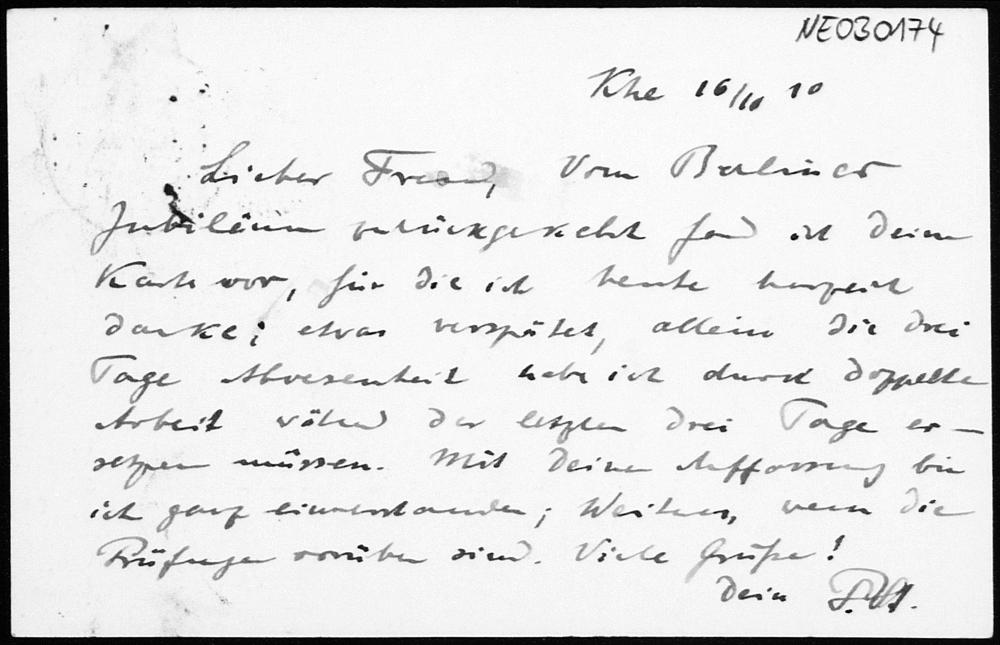 NE030174
Khe 16/10 10
Lieber Freund, Vom Berliner
Jubiläum zurückgekehrt fand ich Deine
Karte vor, für die ich heute herzlich
danke; etwas verspätet, allein die drei
Tage Abwesenheit habe ich durch doppelte
Arbeit währd der letzten drei Tage er-
setzen müssen. Mit Deiner Auffassung bin
ich ganz einverstanden; Weiteres, wenn die
Prüfungen vorüber sind. Viele Grüße!
Dein P. St.